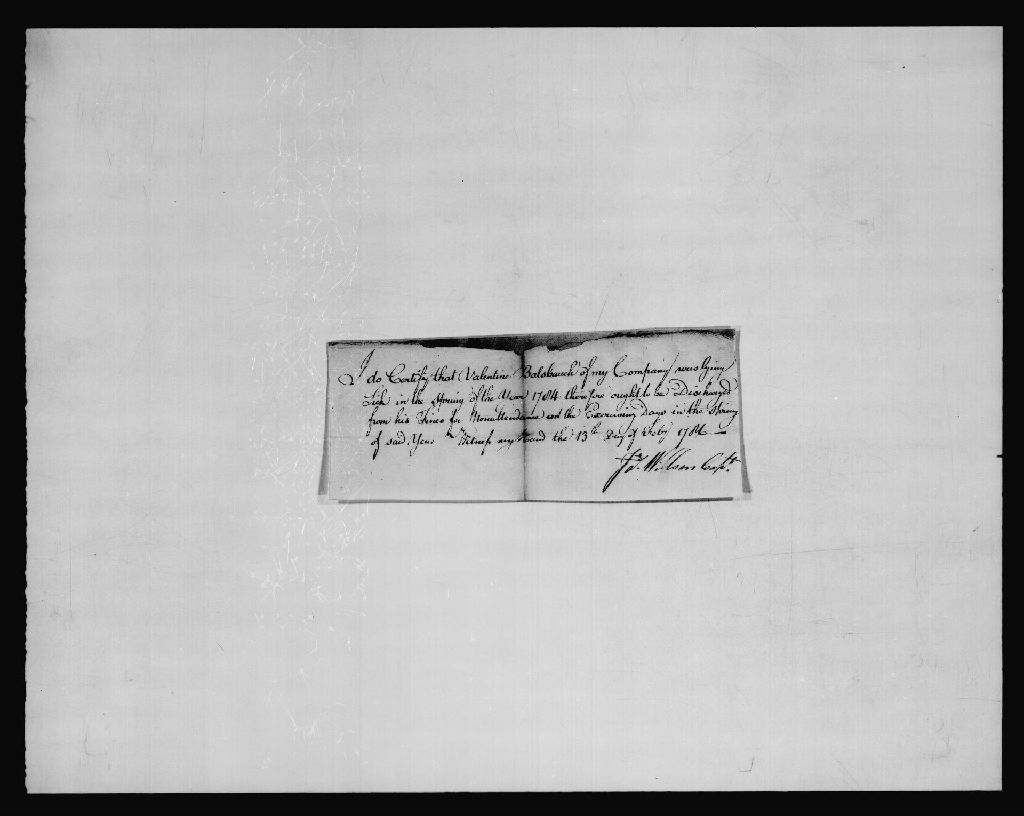 I do Certify that Valentine Balsbauch of my Company was lying
Sick in the Spring of the Year 1784 therefore ought to be Discharged
from his Fines for Nonattendance on the Exercising Days in the Spring
of said Year Witness my Hand the 13th Day of Feby 1786
Jas. Wilson Capt.